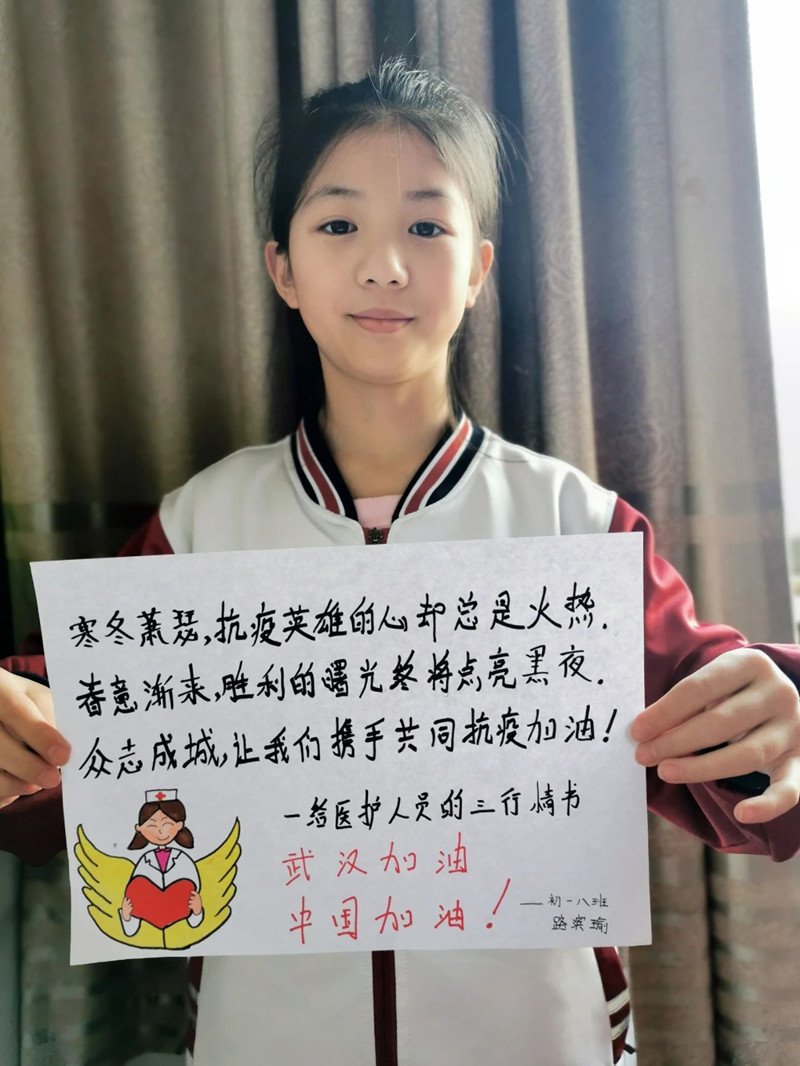 寒冬萧瑟,抗疫英雄的心却总是火热.
春意渐来,胜利的曙光终将点亮黑夜.
众志成城,让我们携手共同抗疫加油!
一名医护人员的三行情书
武汉加油
中国加油!
——初一八班
路宾瑜